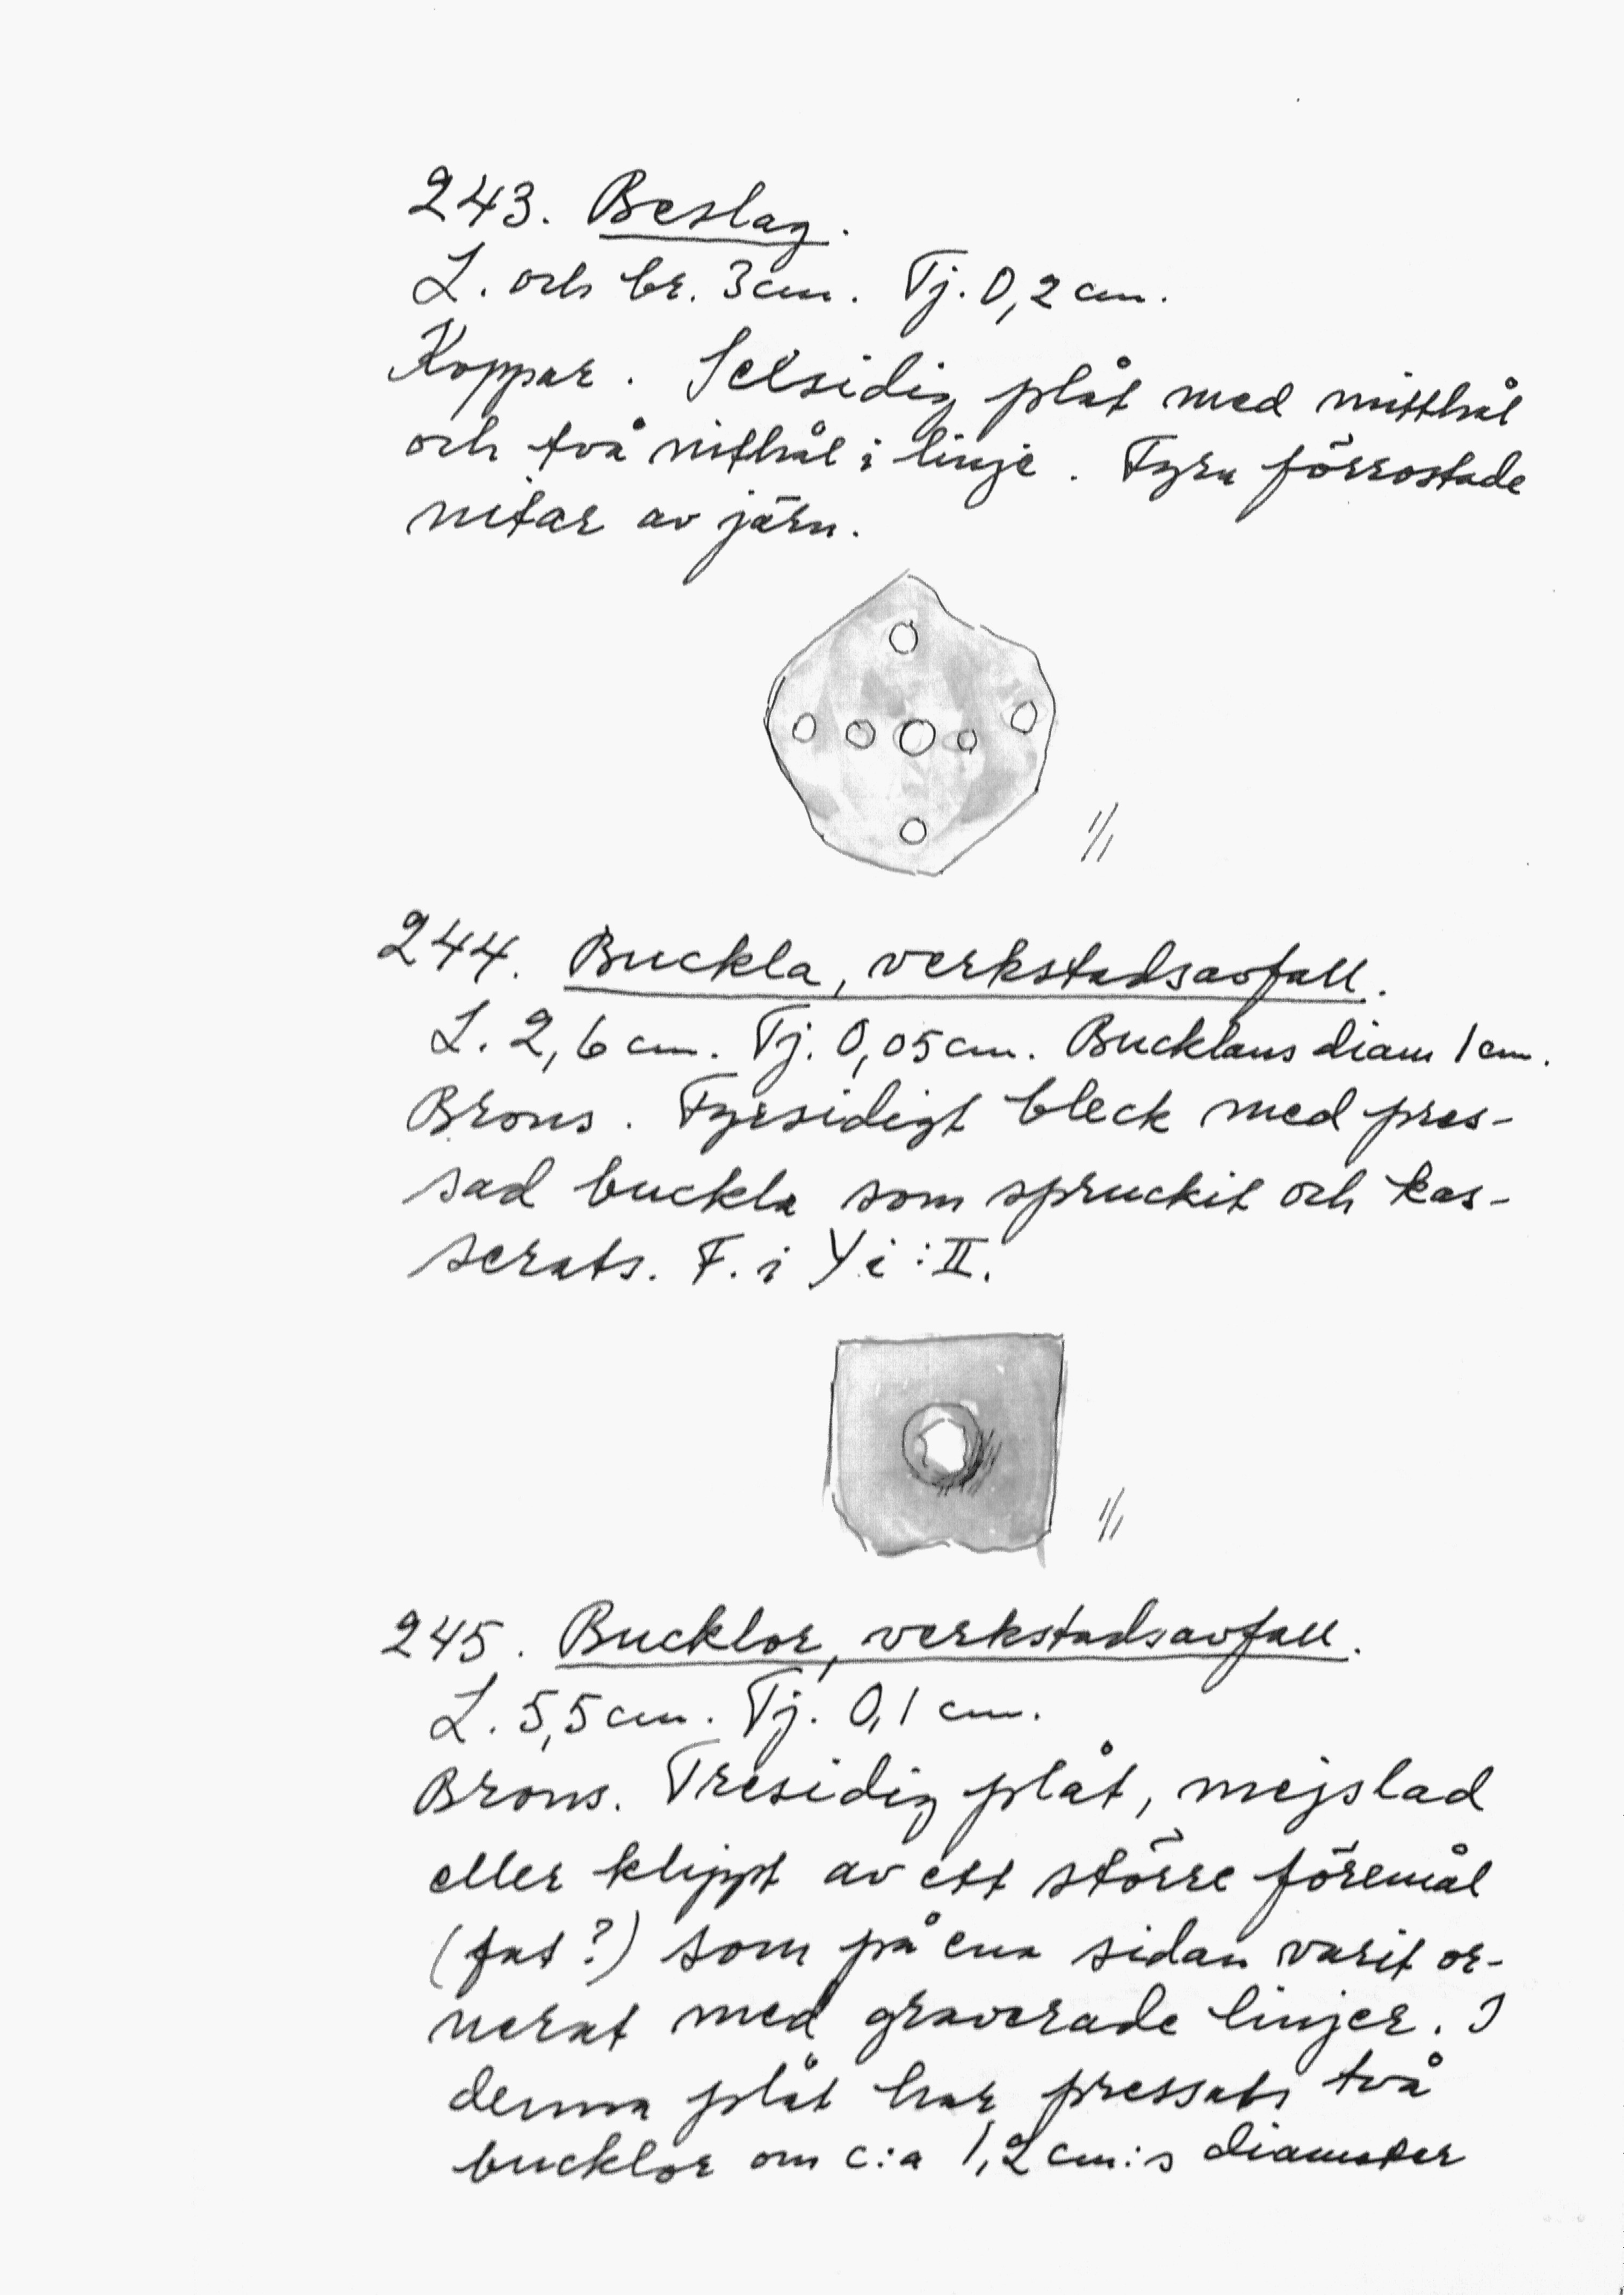 243. Beslag.
L. och br. 3 cm. Tj. 0,2 cm.
Koppar. Sexsidig plåt med mitthål
och två nithål i linje. Fyra förrostade
nitar av järn.
1/1
244. Buckla, verkstadsavfall.
L. 2,6 cm. Tj. 0,05 cm. Bucklans diam 1 cm.
Brons. Fyrsidigt bleck med pres-
sad buckla som spruckit och kas-
serats. F. i Yi:II.
1/1
245. Bucklor, verkstadsavfall.
L. 5,5 cm. Tj. 0,1 cm.
Brons. Tresidig plåt, mejslad
eller klippt av ett större föremål
(fat?) som på ena sidan varit or-
nerat med graverade linjer. I
denna plåt har pressats två
bucklor om c:a 1,2 cm:s diameter